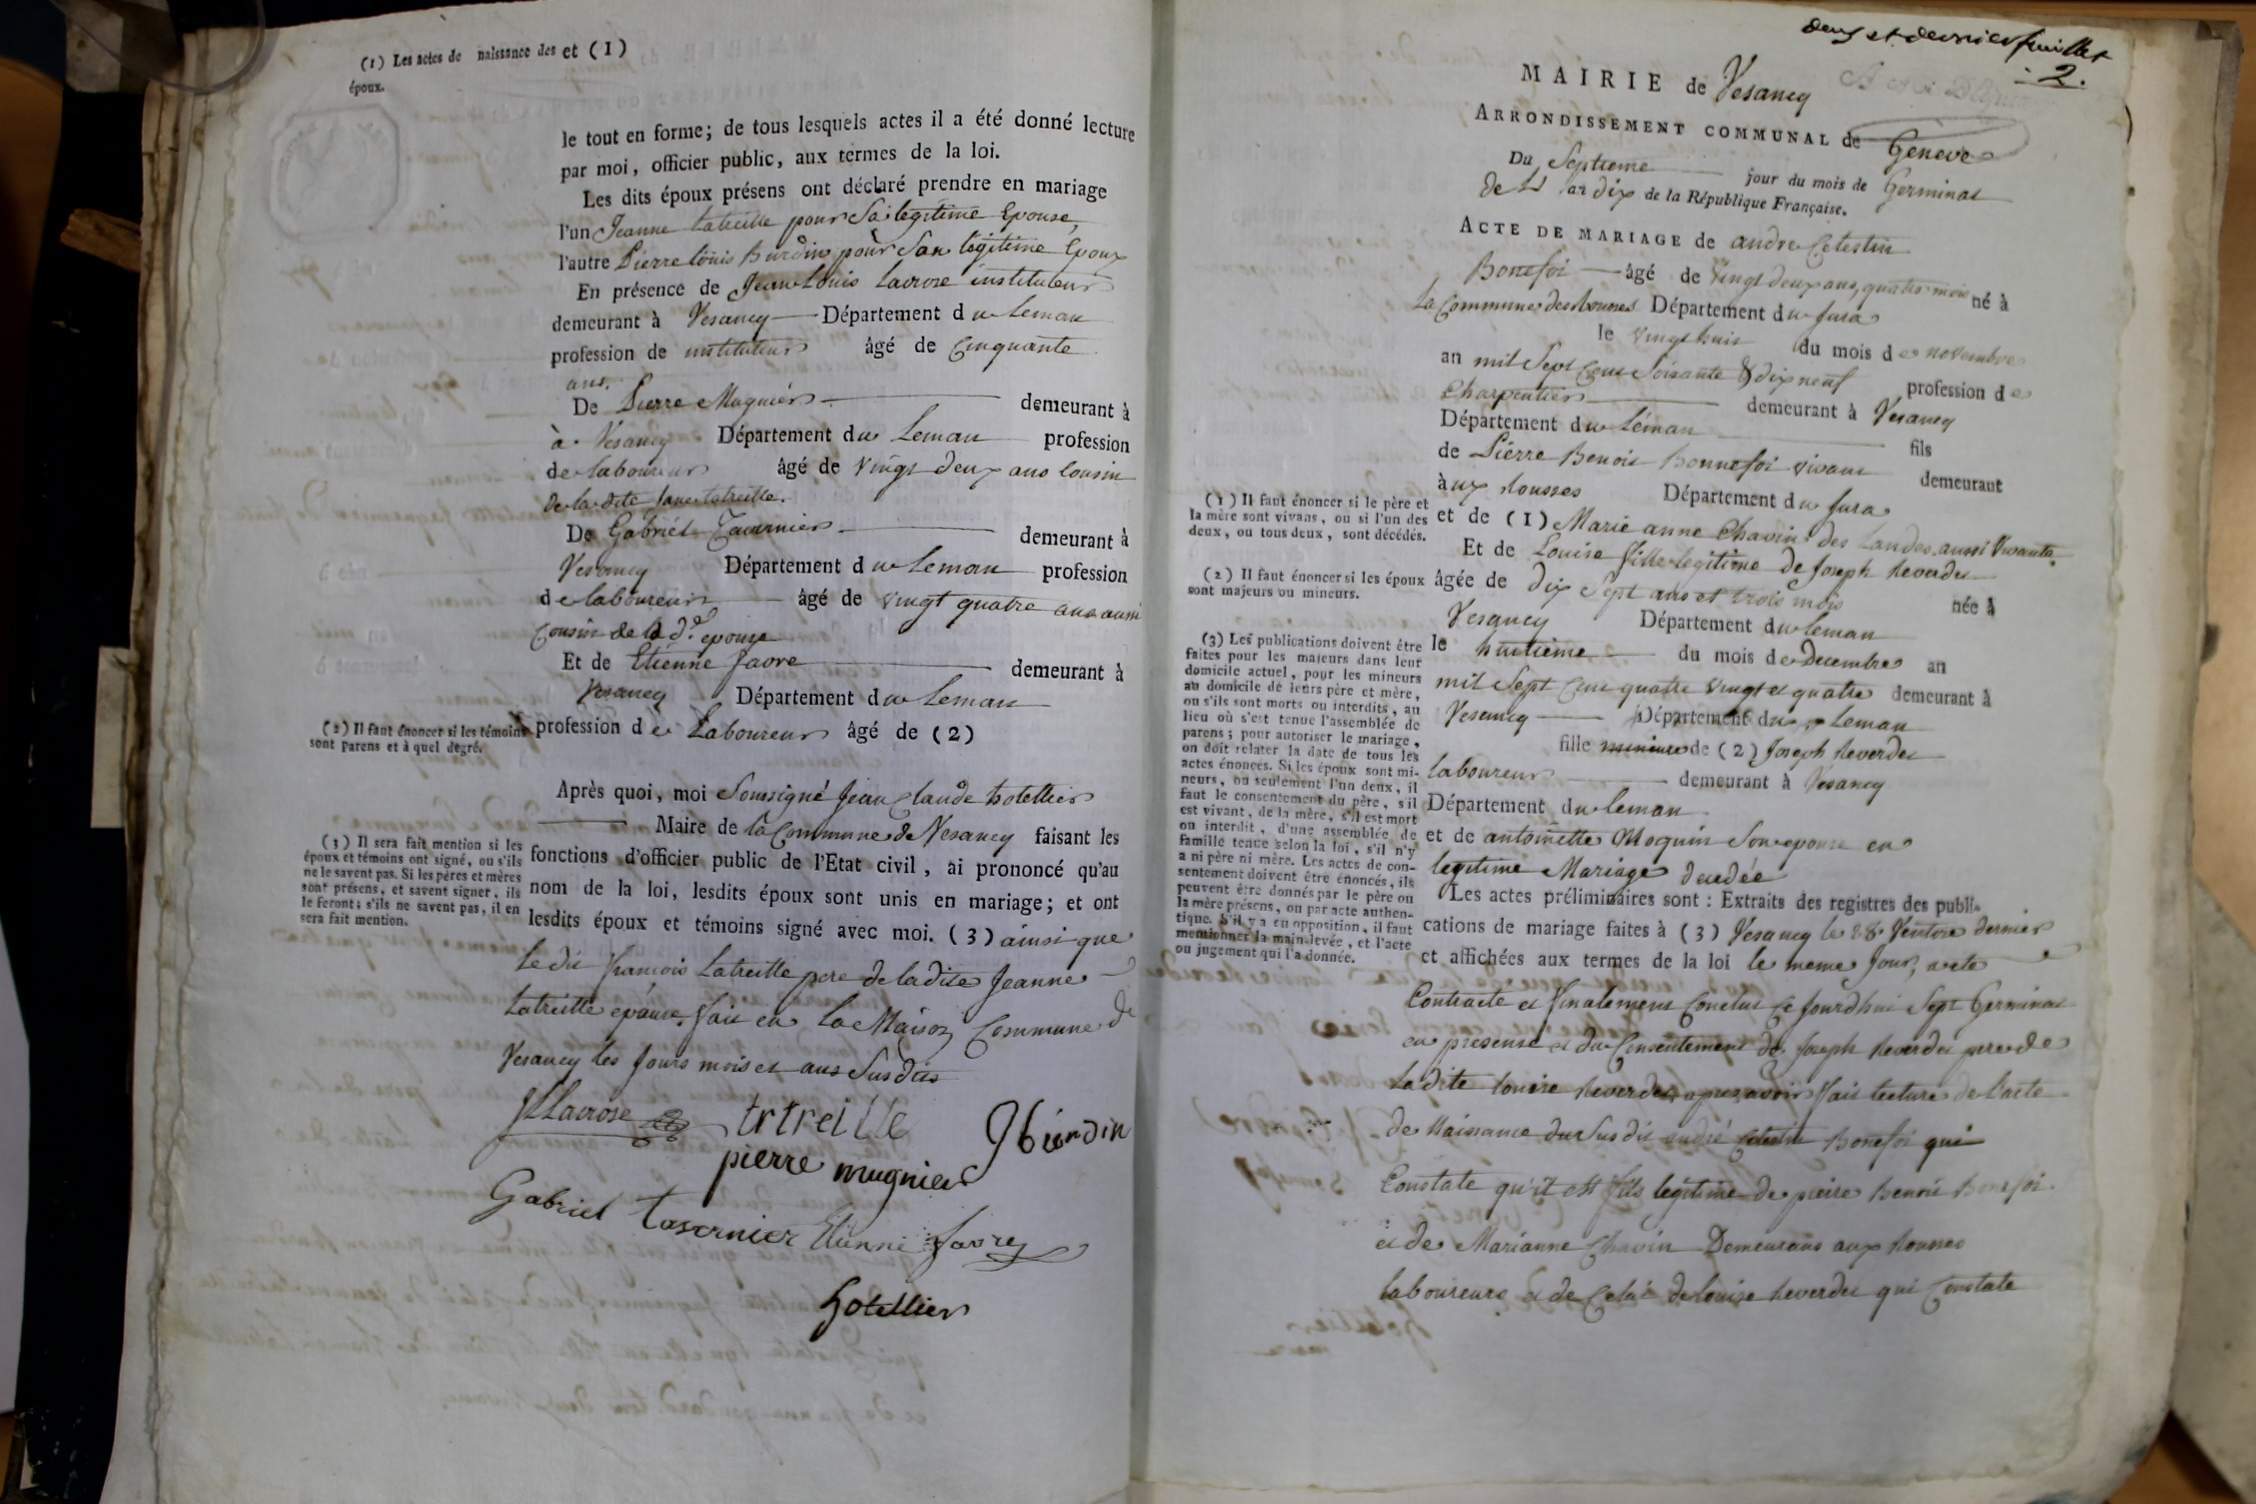 (1) Les actes de naissance des et (1)
époux.
le tout en forme; de tous lesquels actes il a été donné lecture
par moi, officier public, aux termes de la loi.
Les dits époux présens ont déclaré prendre en mariage
l'un Jeanne Latreille pour Sa légitime Epouse,
l'autre Pierre Louis Burdin pour Son légitime Epoux
En présence de Jean Louis Lacroze instituteur
demeurant à Vesancy Département du Leman
profession de instituteur âgé de Cinquante
ans.
De Pierre Mugnier demeurant à
à Vesancy Département du Leman profession
de laboureur âgé de vingt deux ans Cousin
de la dite Jane Latreille.
De Gabriel Tavernier demeurant à
Vesancy Département du Leman profession
de laboureur âgé de vingt quatre ans aussi
Cousin de la de. epouse
Et de Etienne favre demeurant à
Vesancy Département du Leman
(2) Il faut énoncer si les témoins
sont parens et à quel degré.
profession de Laboureur âgé de (2)
Après quoi, moi Soussigné Jean Claude hotellier
Maire de la Commune de Vesancy faisant les
fonctions d'officier public de l'Etat civil, ai prononcé qu'au
nom de la loi, lesdits époux sont unis en mariage; et ont
lesdits époux et témoins signé avec moi. (3) ainsi que
(3) Il sera fait mention si les
époux et témoins ont signé, ou s'ils
ne le savent pas. Si les pères et mères
sont présens, et savent signer, ils
le feront; s'ils ne savent pas, il en
sera fait mention.
le dit françois Latreille pere de la dite Jeanne
Latreille epouse. fait en la Maison Commune de
Vesancy les Jours mois et ans Susdits
JLLacrose trtreille
pierre mugnier
Gabriel tavernier Etienne favre
hotellier
deux et dernier feuillet
2.
MAIRIE de Vesancy
ARRONDISSEMENT COMMUNAL de Geneve
Du Septieme jour du mois de Germinal
de L'an dix de la République Française.
ACTE DE MARIAGE de andre Celestin
Bonefoi âgé de vingt deux ans, quatre mois né à
la Commune des Rousses Département du Jura
le vingt huit du mois de novembre
an mil Sept Cent Soisante & dix neuf profession de
Charpentier demeurant à Vesancy
Département du Léman fils
de Pierre Benoit Bonnefoi vivant demeurant
aux Rousses Département du Jura
et de (1) Marie anne Chavin des Landes aussi vivante.
(1) Il faut énoncer si le père et
la mère sont vivans, ou si l'un des
deux, ou tous deux, sont décédés.
Et de Louise fille legitime de Joseph Reverdet
âgée de dix Sept ans et trois mois née à
(2) Il faut énoncer si les époux
sont majeurs ou mineurs.
Vesancy Département du Leman
le huitieme du mois de Decembre an
mil Sept Cent quatre vingt et quatre demeurant à
Vesancy Département du Leman
fille mineure de (2) Joseph Reverdet
laboureur demeurant à Vesancy
Département du Leman
et de antoinette Moquin Son epouse en
legitime Mariage decedée
(3) Les publications doivent être
faites pour les majeurs dans leur
domicile actuel, pour les mineurs
au domicile de leurs père et mère,
ou s'ils sont morts ou interdits, au
lieu où s'est tenue l'assemblée de
parens; pour autoriser le mariage,
on doit relater la date de tous les
actes énoncés. Si les époux sont mi-
neurs, ou seulement l'un deux, il
faut le consentement du père, s'il
est vivant, de la mère, s'il est mort
ou interdit, d'une assemblée de
famille tenue selon la loi, s'il n'y
a ni père ni mère. Les actes de con-
sentement doivent être énoncés, ils
peuvent être donnés par le père ou
la mère présens, ou par acte authen-
tique. S'il y a eu opposition, il faut
mentionner la main-levée, et l'acte
ou jugement qui l'a donnée.
Les actes préliminaires sont: Extraits des registres des publi-
cations de mariage faites à (3) Vesancy le 28 Ventose dernier
et affichées aux termes de la loi le meme Jour, a été
Contracté et finalement Conclut Ce Jourdhui Sept Germinal
en presense et du Consentement de Joseph Reverdet pere de
La dite Louise Reverdet, apres avoir fait lecture de l'acte
de Naissance du Susdit andré Celestin Bonefoi qui
Constate qu'il est fils legitime de pierre benoit Bonefoi
et de Marianne Chavin Demeurans aux Rousses
laboureurs et de Celui de Louise Reverdet qui Constate